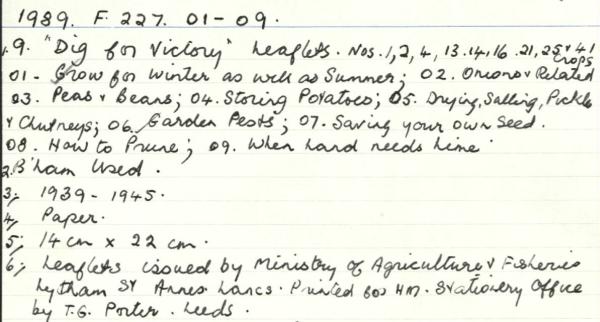 1989. F. 227. 01-09.
1. 9. "Dig for Victory" Leaflets. Nos. 1, 2, 4, 13. 14. 16. 21, 25 & 41
01 - Grow for Winter as well as Summer; 02. Onions & Related Crops
03. Peas & Beans; 04. Storing Potatoes; 05. Drying, Salting, Pickles
& Chutneys; 06. Garden Pests; 07. Saving your own Seed.
08. How to Prune; 09. When Land needs Lime
2. B'ham Used.
3; 1939 - 1945.
4; Paper.
5; 14 cm x 22 cm.
6; Leaflets issued by Ministry of Agriculture & Fisheries
Lytham St Annes Lancs. Printed for HM. Stationery Office
by T.G. Porter. Leeds.